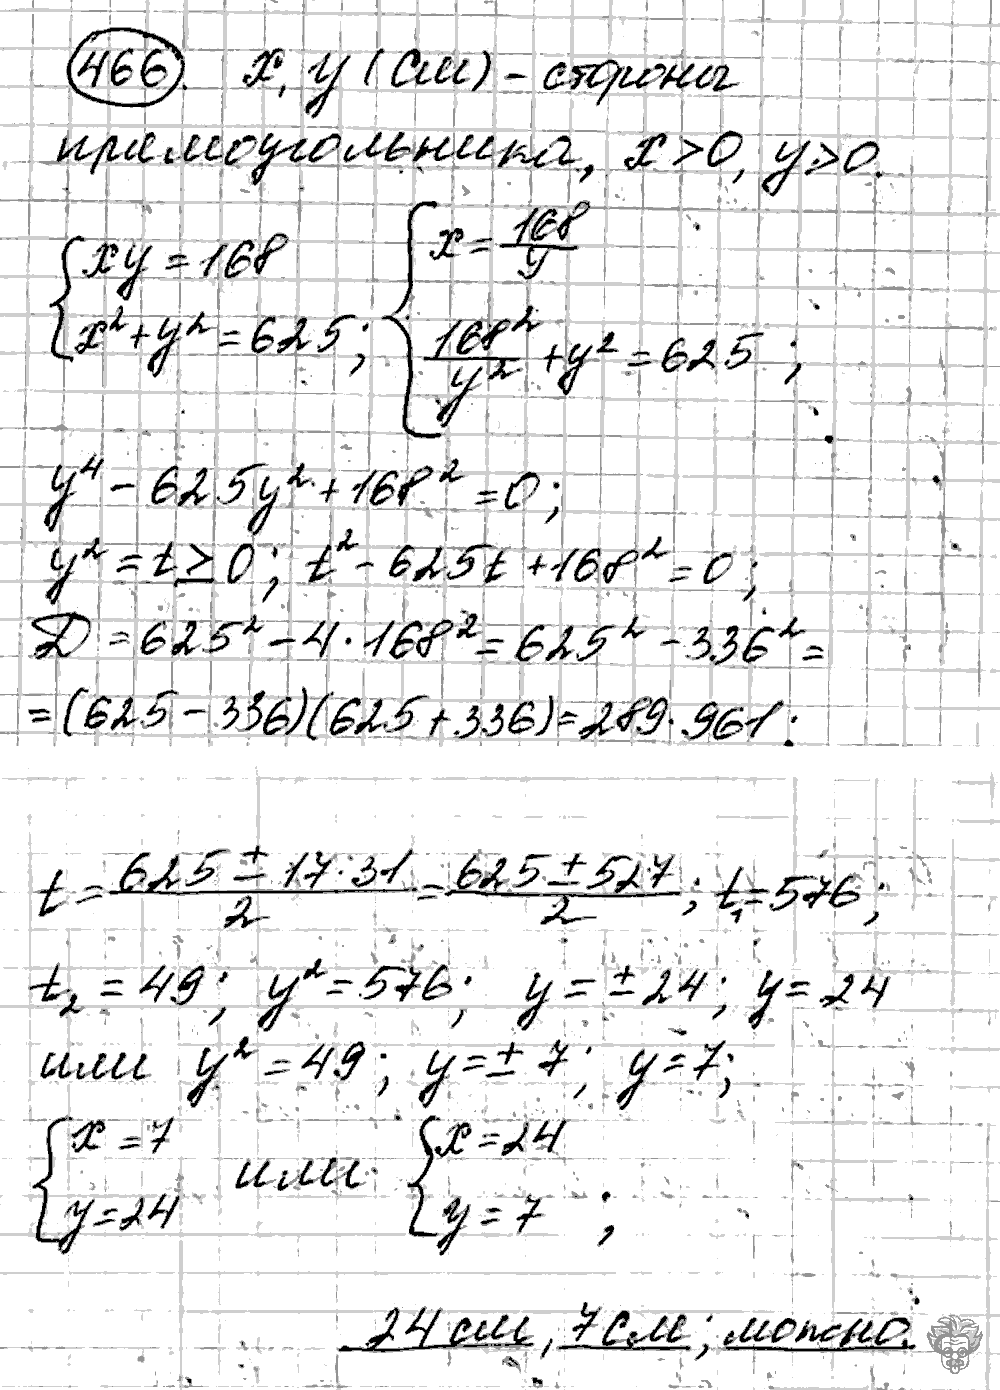 466. x, y (см) – стороны
прямоугольника, x>0, y>0.
{xy=168
x²+y²=625; {x=168/y
168²/y²+y²=625;
y⁴-625y²+168²=0;
y²=t≥0; t²-625t+168²=0;
D=625²-4·168²=625²-336²=
=(625-336)(625+336)=289·961;
t=(625±17·31)/2=(625±527)/2; t₁=576;
t₂=49; y²=576; y=±24; y=24
или y²=49; y=±7; y=7;
{x=7
y=24 или {x=24
y=7;
24 см, 7 см; можно.